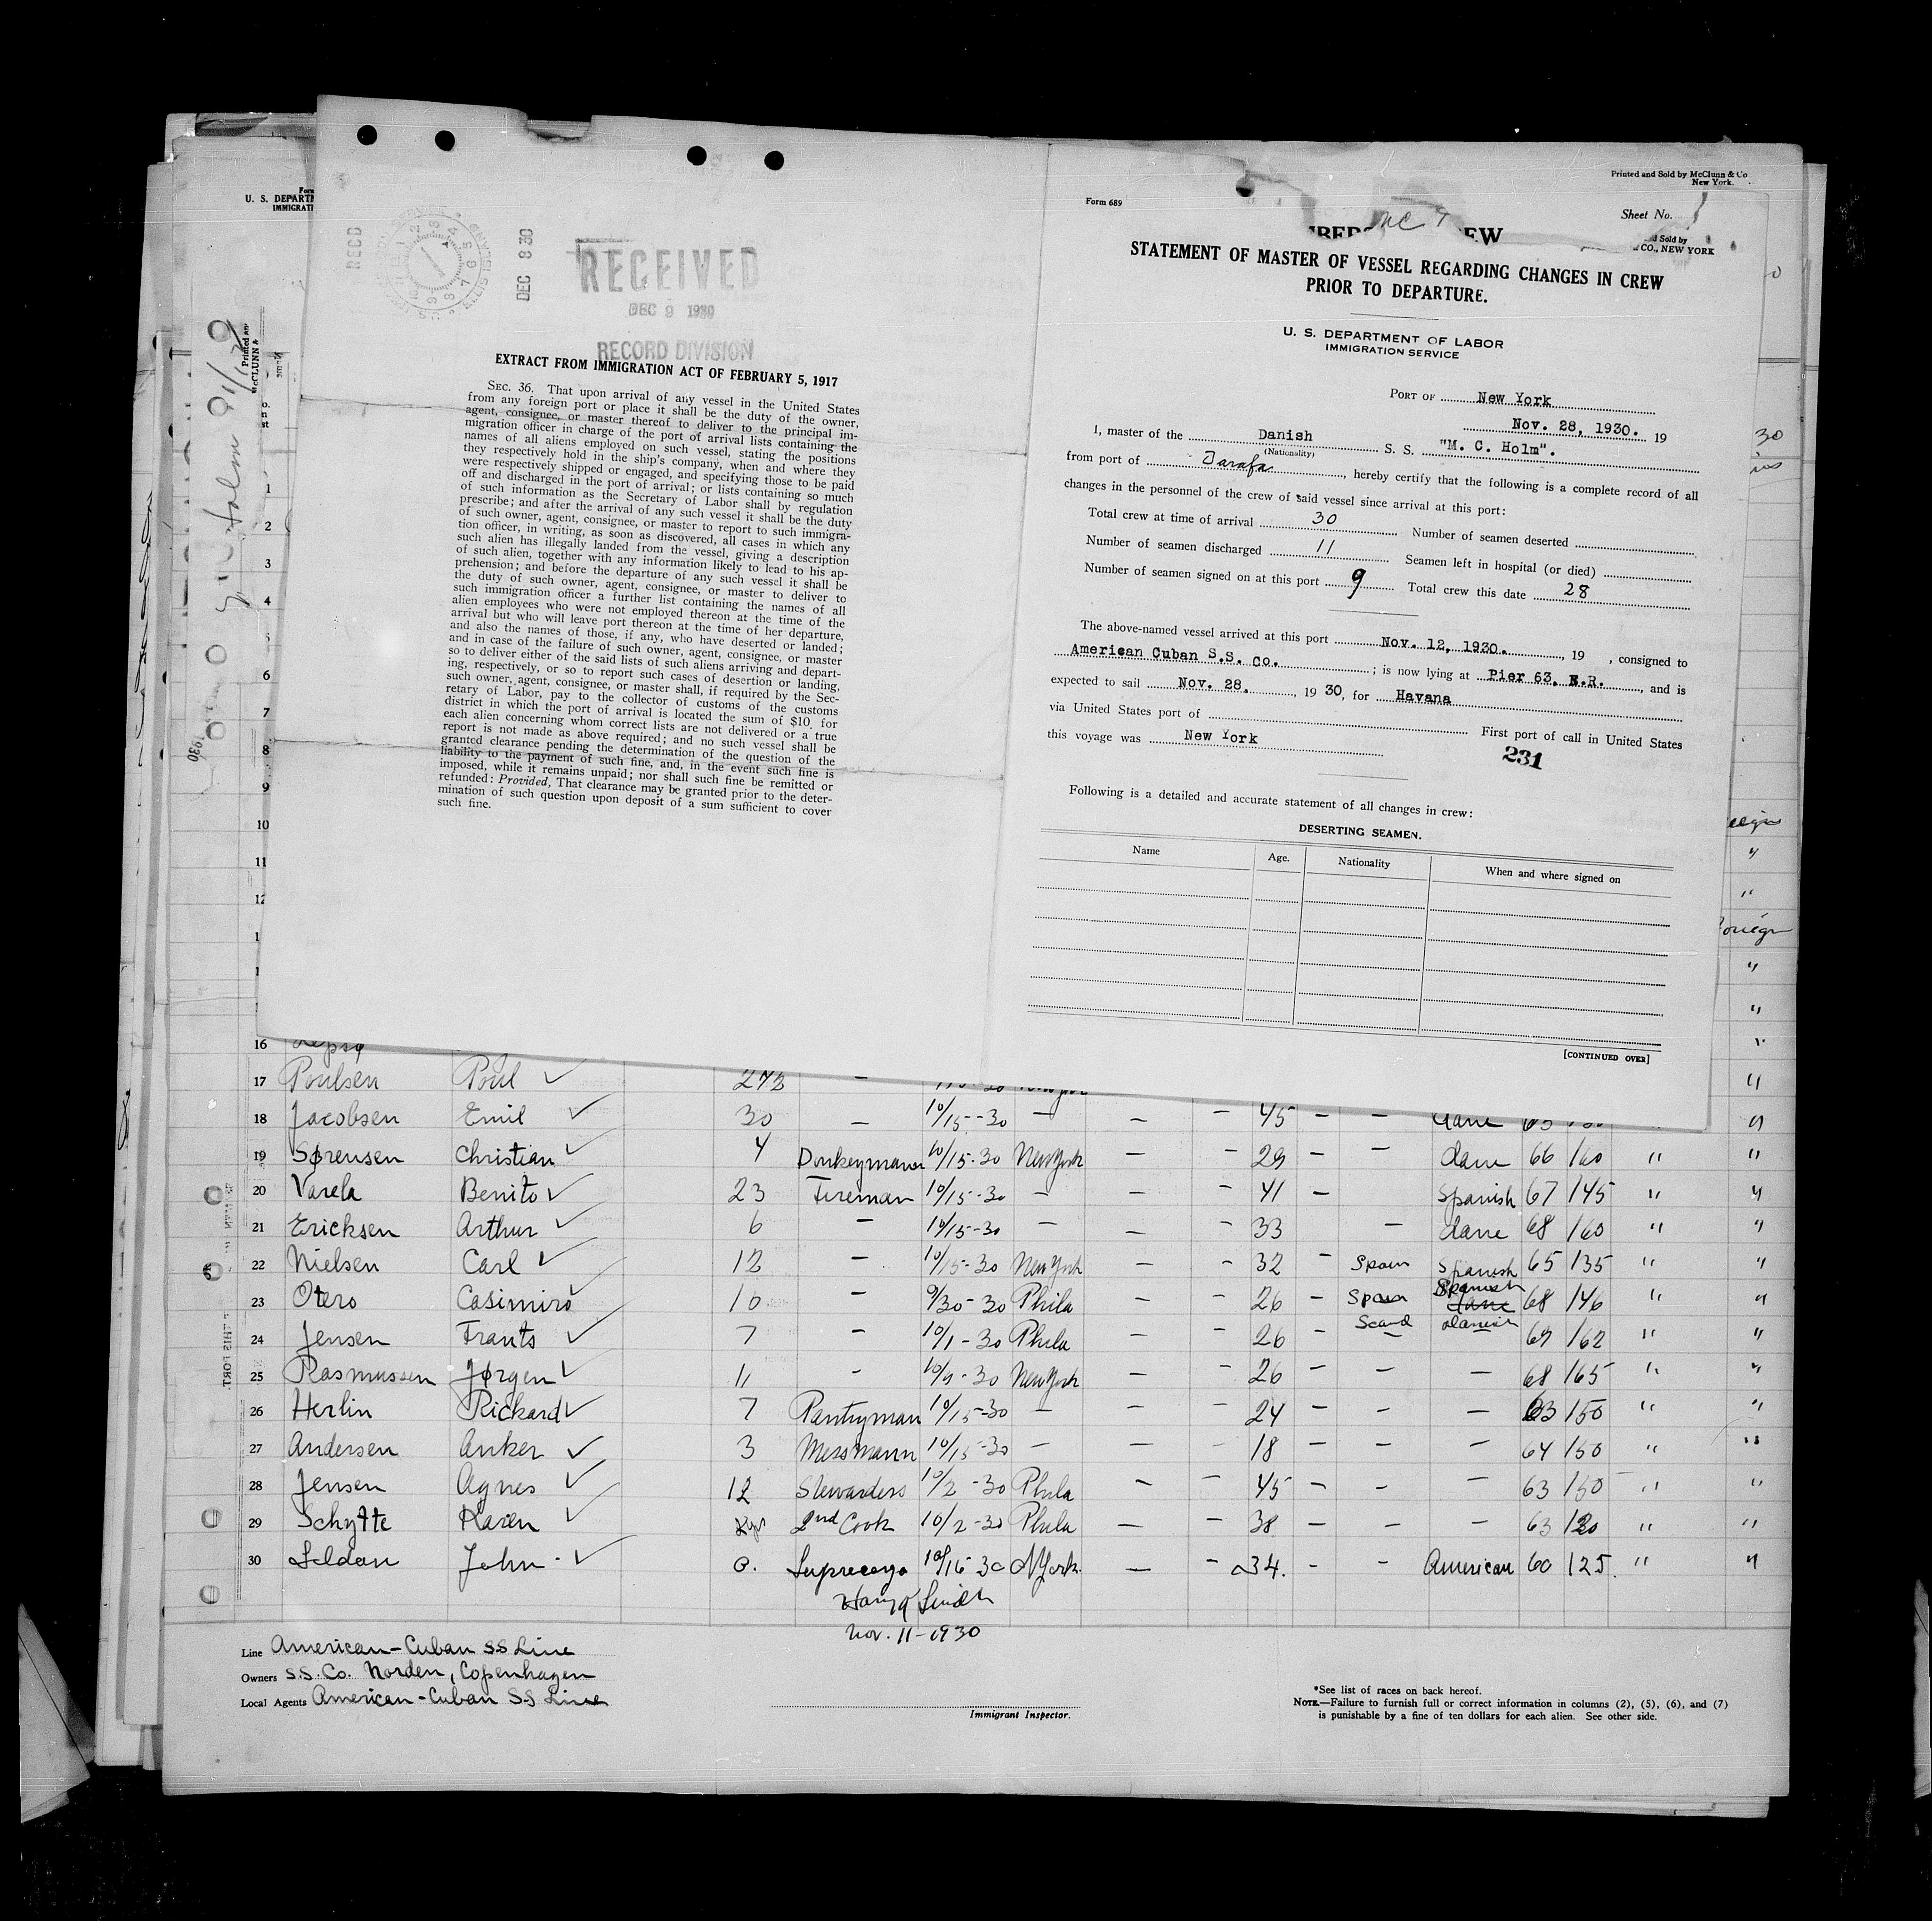 U. S. DEPART
IMMIGRATI
RECD
DEC 8 30
RECEIVED
DEC 9 1930
RECORD DIVISION
EXTRACT FROM IMMIGRATION ACT OF FEBRUARY 5, 1917
SEC. 36. That upon arrival of any vessel in the United States
from any foreign port or place it shall be the duty of the owner,
agent, consignee, or master thereof to deliver to the principal im-
migration officer in charge of the port of arrival lists containing the
names of all aliens employed on such vessel, stating the positions
they respectively hold in the ship's company, when and where they
were respectively shipped or engaged, and specifying those to be paid
off and discharged in the port of arrival; or lists containing so much
of such information as the Secretary of Labor shall by regulation
prescribe; and after the arrival of any such vessel it shall be the duty
of such owner, agent, consignee, or master to report to such immigra-
tion officer, in writing, as soon as discovered, all cases in which any
such alien has illegally landed from the vessel, giving a description
of such alien, together with any information likely to lead to his ap-
prehension; and before the departure of any such vessel it shall be
the duty of such owner, agent, consignee, or master to deliver to
such immigration officer a further list containing the names of all
alien employees who were not employed thereon at the time of the
arrival but who will leave port thereon at the time of her departure,
and also the names of those, if any, who have deserted or landed;
and in case of the failure of such owner, agent, consignee, or master
so to deliver either of the said lists of such aliens arriving and depart-
ing, respectively, or so to report such cases of desertion or landing,
such owner, agent, consignee, or master shall, if required by the Sec-
retary of Labor, pay to the collector of customs of the customs
district in which the port of arrival is located the sum of $10, for
each alien concerning whom correct lists are not delivered or a true
report is not made as above required; and no such vessel shall be
granted clearance pending the determination of the question of the
liability to the payment of such fine, and, in the event such fine is
imposed, while it remains unpaid; nor shall such fine be remitted or
refunded: Provided, That clearance may be granted prior to the deter-
mination of such question upon deposit of a sum sufficient to cover
such fine.
Printed and Sold by McClunn & Co
New York.
Sheet No. 1
Form 689
d Sold by
CO., NEW YORK
STATEMENT OF MASTER OF VESSEL REGARDING CHANGES IN CREW
PRIOR TO DEPARTURE.
U. S. DEPARTMENT OF LABOR
IMMIGRATION SERVICE
PORT OF New York
Nov. 28, 1930. 19
I, master of the Danish S. S. "M. C. Holm".
(Nationality)
from port of Tarafa, hereby certify that the following is a complete record of all
changes in the personnel of the crew of said vessel since arrival at this port:
Total crew at time of arrival 30 Number of seamen deserted
Number of seamen discharged 11 Seamen left in hospital (or died)
Number of seamen signed on at this port 9 Total crew this date 28
The above-named vessel arrived at this port Nov. 12, 1930., 19 , consigned to
American Cuban S.S. Co. ; is now lying at Pier 63, N.R., and is
expected to sail Nov. 28, 1930, for Havana
via United States port of First port of call in United States
this voyage was New York
231
Following is a detailed and accurate statement of all changes in crew:
DESERTING SEAMEN.
Name Age. Nationality When and where signed on
[CONTINUED OVER]
16
17 Poulsen Poul ✓
18 Jacobsen Emil ✓ 30 — 10/15-30 — — — 45 — — dane "
19 Sørensen Christian ✓ 4 Donkeyman 10/15-30 New York — — 29 — — dane 66 160 " "
20 Varela Benito ✓ 23 Fireman 10/15-30 — — — 41 — Spanish 67 145 " "
21 Ericksen Arthur ✓ 6 — 10/15-30 — — — 33 — dane 68 160 " "
22 Nielsen Carl ✓ 12 — 10/15-30 New York — — 32 — Spain Spanish 65 135 " "
23 Otero Casimiro ✓ 10 — 9/30-30 Phila — — 26 — Spain Spanish dane 68 146 " "
24 Jensen Frants ✓ 7 — 10/1-30 Phila — — 26 — Scand danish 69 162 " "
25 Rasmussen Jørgen ✓ 11 — 10/9-30 New York — — 26 — — — 68 165 " "
26 Herlin Rickard ✓ 7 Pantryman 10/15-30 — — — 24 — — — 63 150 " "
27 Andersen Anker ✓ 3 Messmann 10/15-30 — — — 18 — — — 64 150 " "
28 Jensen Agnes ✓ 12 Stewardess 10/2-30 Phila — — 45 — — — 63 150 " "
29 Schytte Karen ✓ 2nd Cook 10/2-30 Phila — — 38 — — — 63 120 " "
30 John ✓ 0. 10/16-30 N York. — — 34. — — American 60 125. " "
Nov. 11-1930
Line American-Cuban SS Line
Owners S.S. Co. Norden, Copenhagen
Local Agents American-Cuban S.S Line
Immigrant Inspector.
*See list of races on back hereof.
NOTE.—Failure to furnish full or correct information in columns (2), (5), (6), and (7)
is punishable by a fine of ten dollars for each alien. See other side.